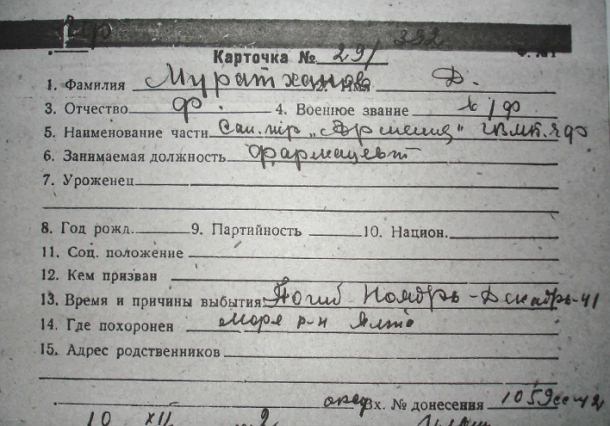 392
Карточка № 291
1. Фамилия Муратханов Д.
3. Отчество Ф. 4. Военное звание в/ф
5. Наименование части Сан. тр. „Армения" ЧФ
6. Занимаемая должность фармацевт
7. Уроженец
8. Год рожд. 9. Партийность 10. Национ.
11. Соц. положение
12. Кем призван
13. Время и причины выбытия: Погиб Ноябрь-Декабрь-41
14. Где похоронен Море р-н Ялта
15. Адрес родственников
Вх. № донесения 1059
10 XII